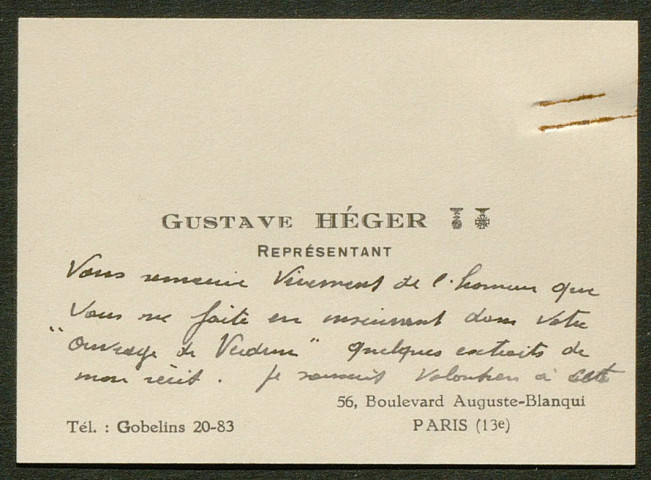 GUSTAVE HÉGER
REPRÉSENTANT
Vous remercie vivement de l'honneur que
vous me faite en inserivant dans votre
"ouvrage de Verdun" quelques extraits de
mon récit. Je souscrit volontiers à cette
56, Boulevard Auguste-Blanqui
Tél. : Gobelins 20-83
PARIS (13e)